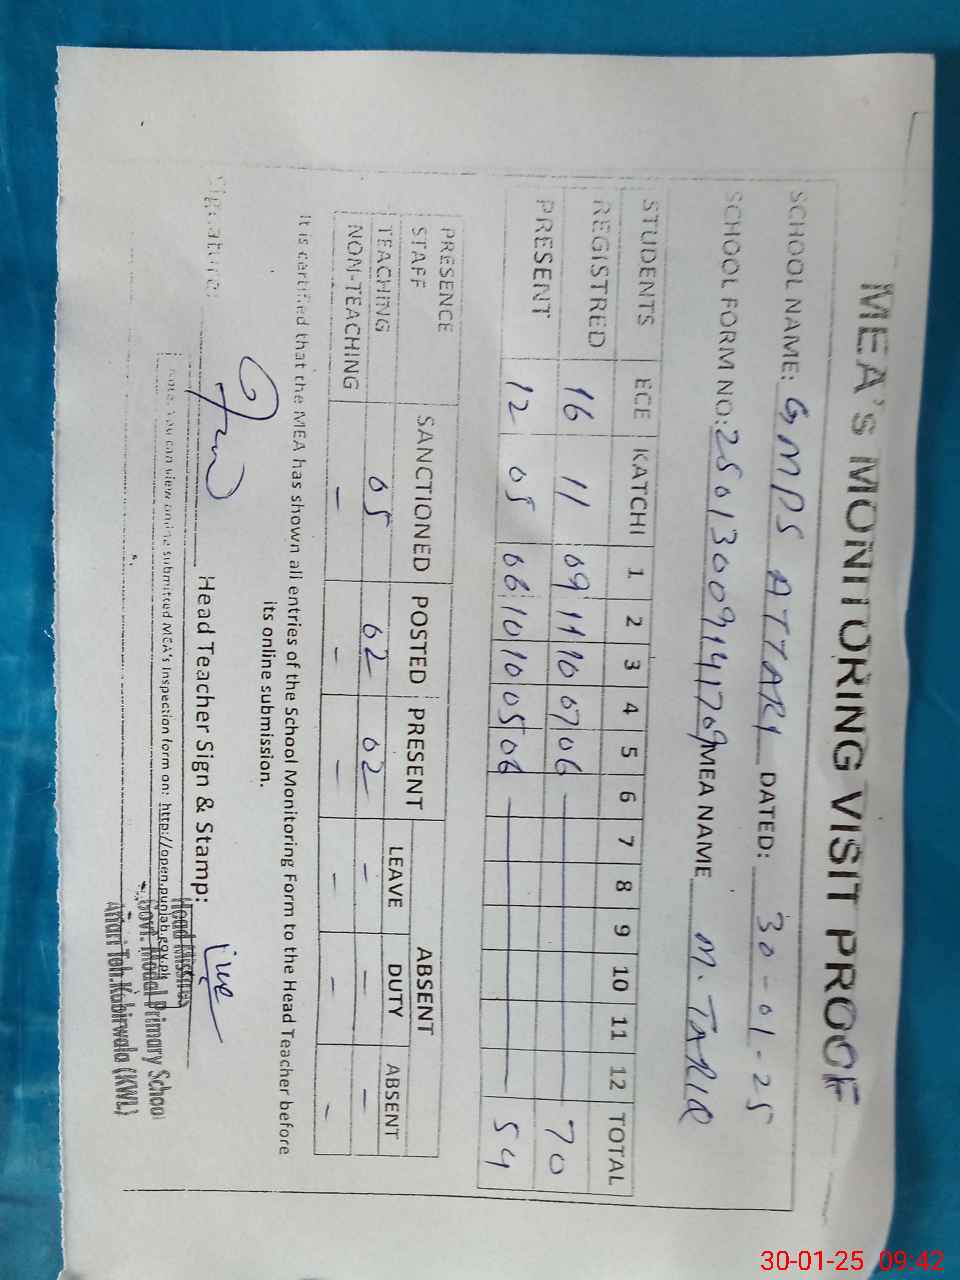 MEA's MONITORING VISIT PROOF
SCHOOL NAME: GMPS ATTARI DATED: 30-01-25
SCHOOL FORM NO: MEA NAME M. TARIQ
STUDENTS ECE KATCHI 1 2 3 4 5 6 7 8 9 10 11 12 TOTAL
REGISTRED 16 11 09 11 10 07 06 70
PRESENT 12 05 06 10 10 05 06 54
PRESENCE STAFF SANCTIONED POSTED PRESENT ABSENT
LEAVE DUTY ABSENT
TEACHING 05 02 02 - - -
NON-TEACHING - - - - - -
It is certified that the MEA has shown all entries of the School Monitoring Form to the Head Teacher before
its online submission.
Signature: Head Teacher Sign & Stamp:
Note: You can view online submitted MEA's inspection form on: http://open.punjab.gov.pk
Head Mistress
Govt. Model Primary School
Attari Teh. Kabirwala (KWL)
30-01-25 09:42